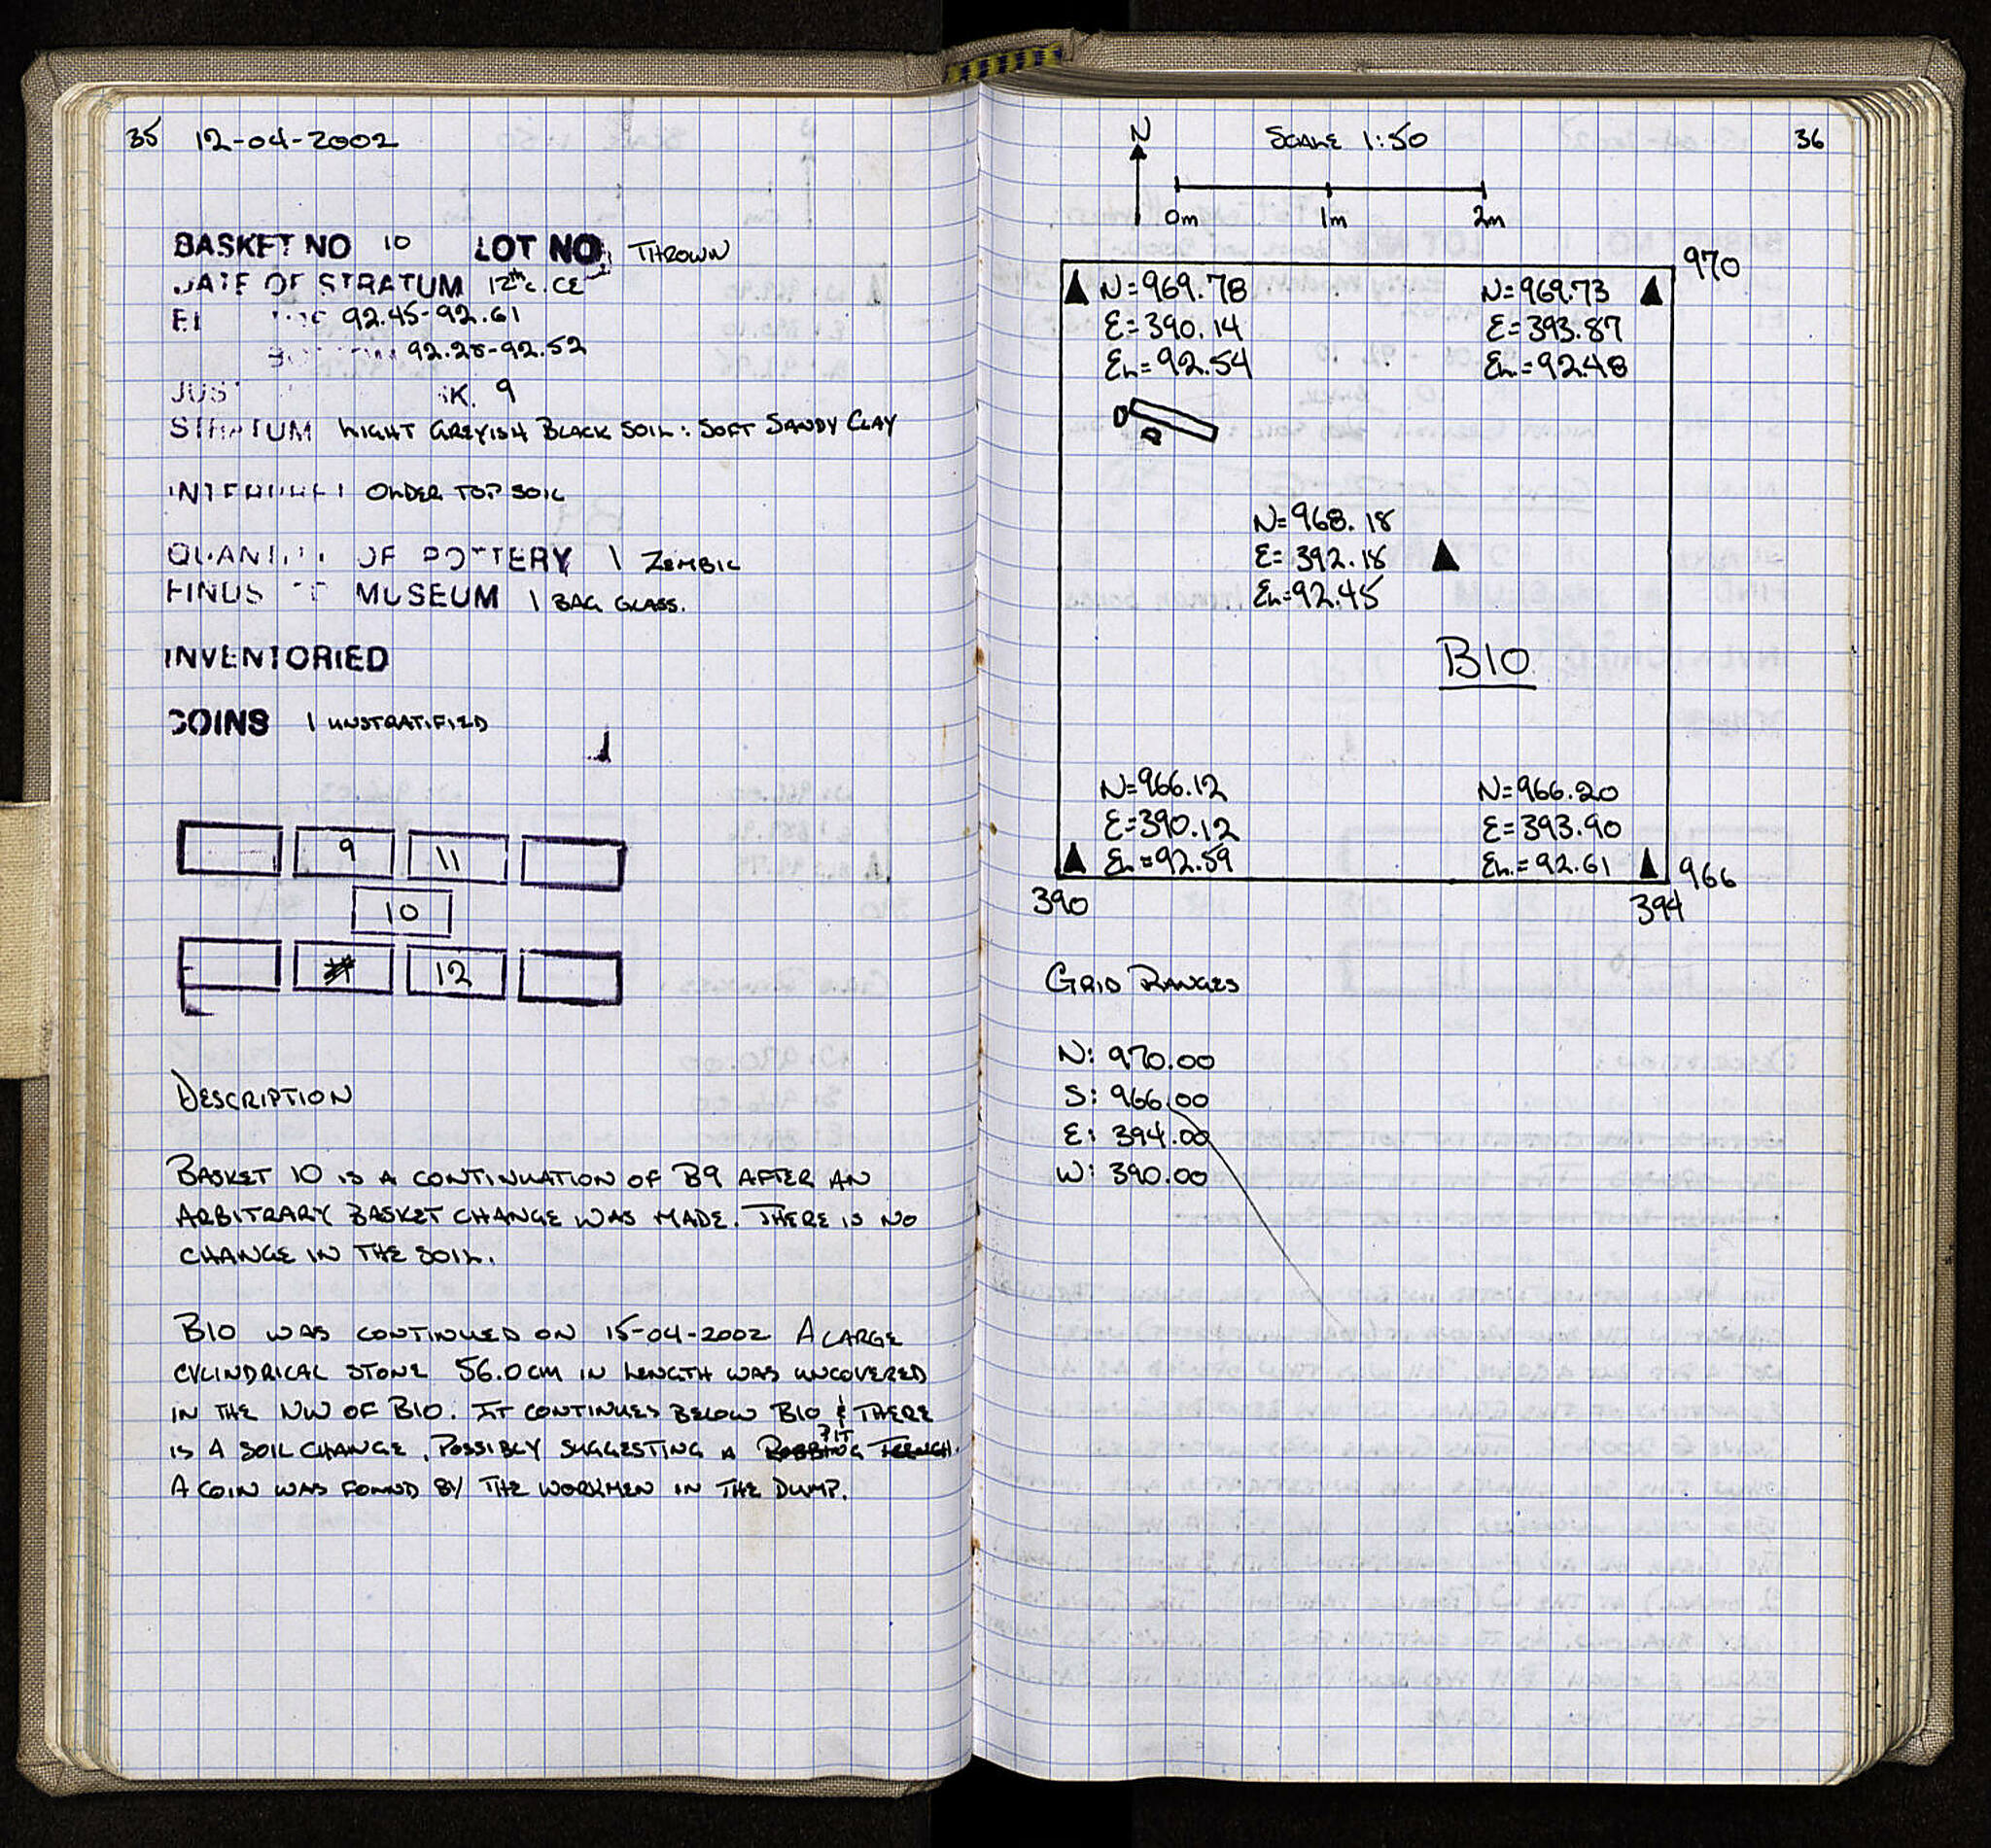 35 12-04-2002
BASKET NO 10 LOT NO. THROWN
DATE OF STRATUM 12th c. CE
92.45-92.61
92.28-92.52
9
STRATUM LIGHT GREYISH BLACK SOIL: SOFT SANDY CLAY
OLDER TOP SOIL
QUANTITY OF POTTERY 1 ZEMBIL
FINDS TO MUSEUM 1 BAG GLASS.
INVENTORIED
COINS 1 UNSTRATIFIED
9 11
10
12
DESCRIPTION
BASKET 10 IS A CONTINUATION OF B9 AFTER AN
ARBITRARY BASKET CHANGE WAS MADE. THERE IS NO
CHANGE IN THE SOIL.
B10 WAS CONTINUED ON 15-04-2002 A LARGE
CYLINDRICAL STONE 56.0CM IN LENGTH WAS UNCOVERED
IN THE NW OF B10. IT CONTINUES BELOW B10 & THERE
IS A SOIL CHANGE, POSSIBLY SUGGESTING A ROBBING TRENCH. PIT
A COIN WAS FOUND BY THE WORKMEN IN THE DUMP.
N SCALE 1:50 36
0m 1m 2m
970
N=969.78 N=969.73
E=390.14 E=393.87
EL=92.54 EL=92.48
N=968.18
E=392.18
EL=92.45
B10
N=966.12 N=966.20
E=390.12 E=393.90
EL=92.59 EL=92.61 966
390 394
GRID RANGES
N: 970.00
S: 966.00
E: 394.00
W: 390.00